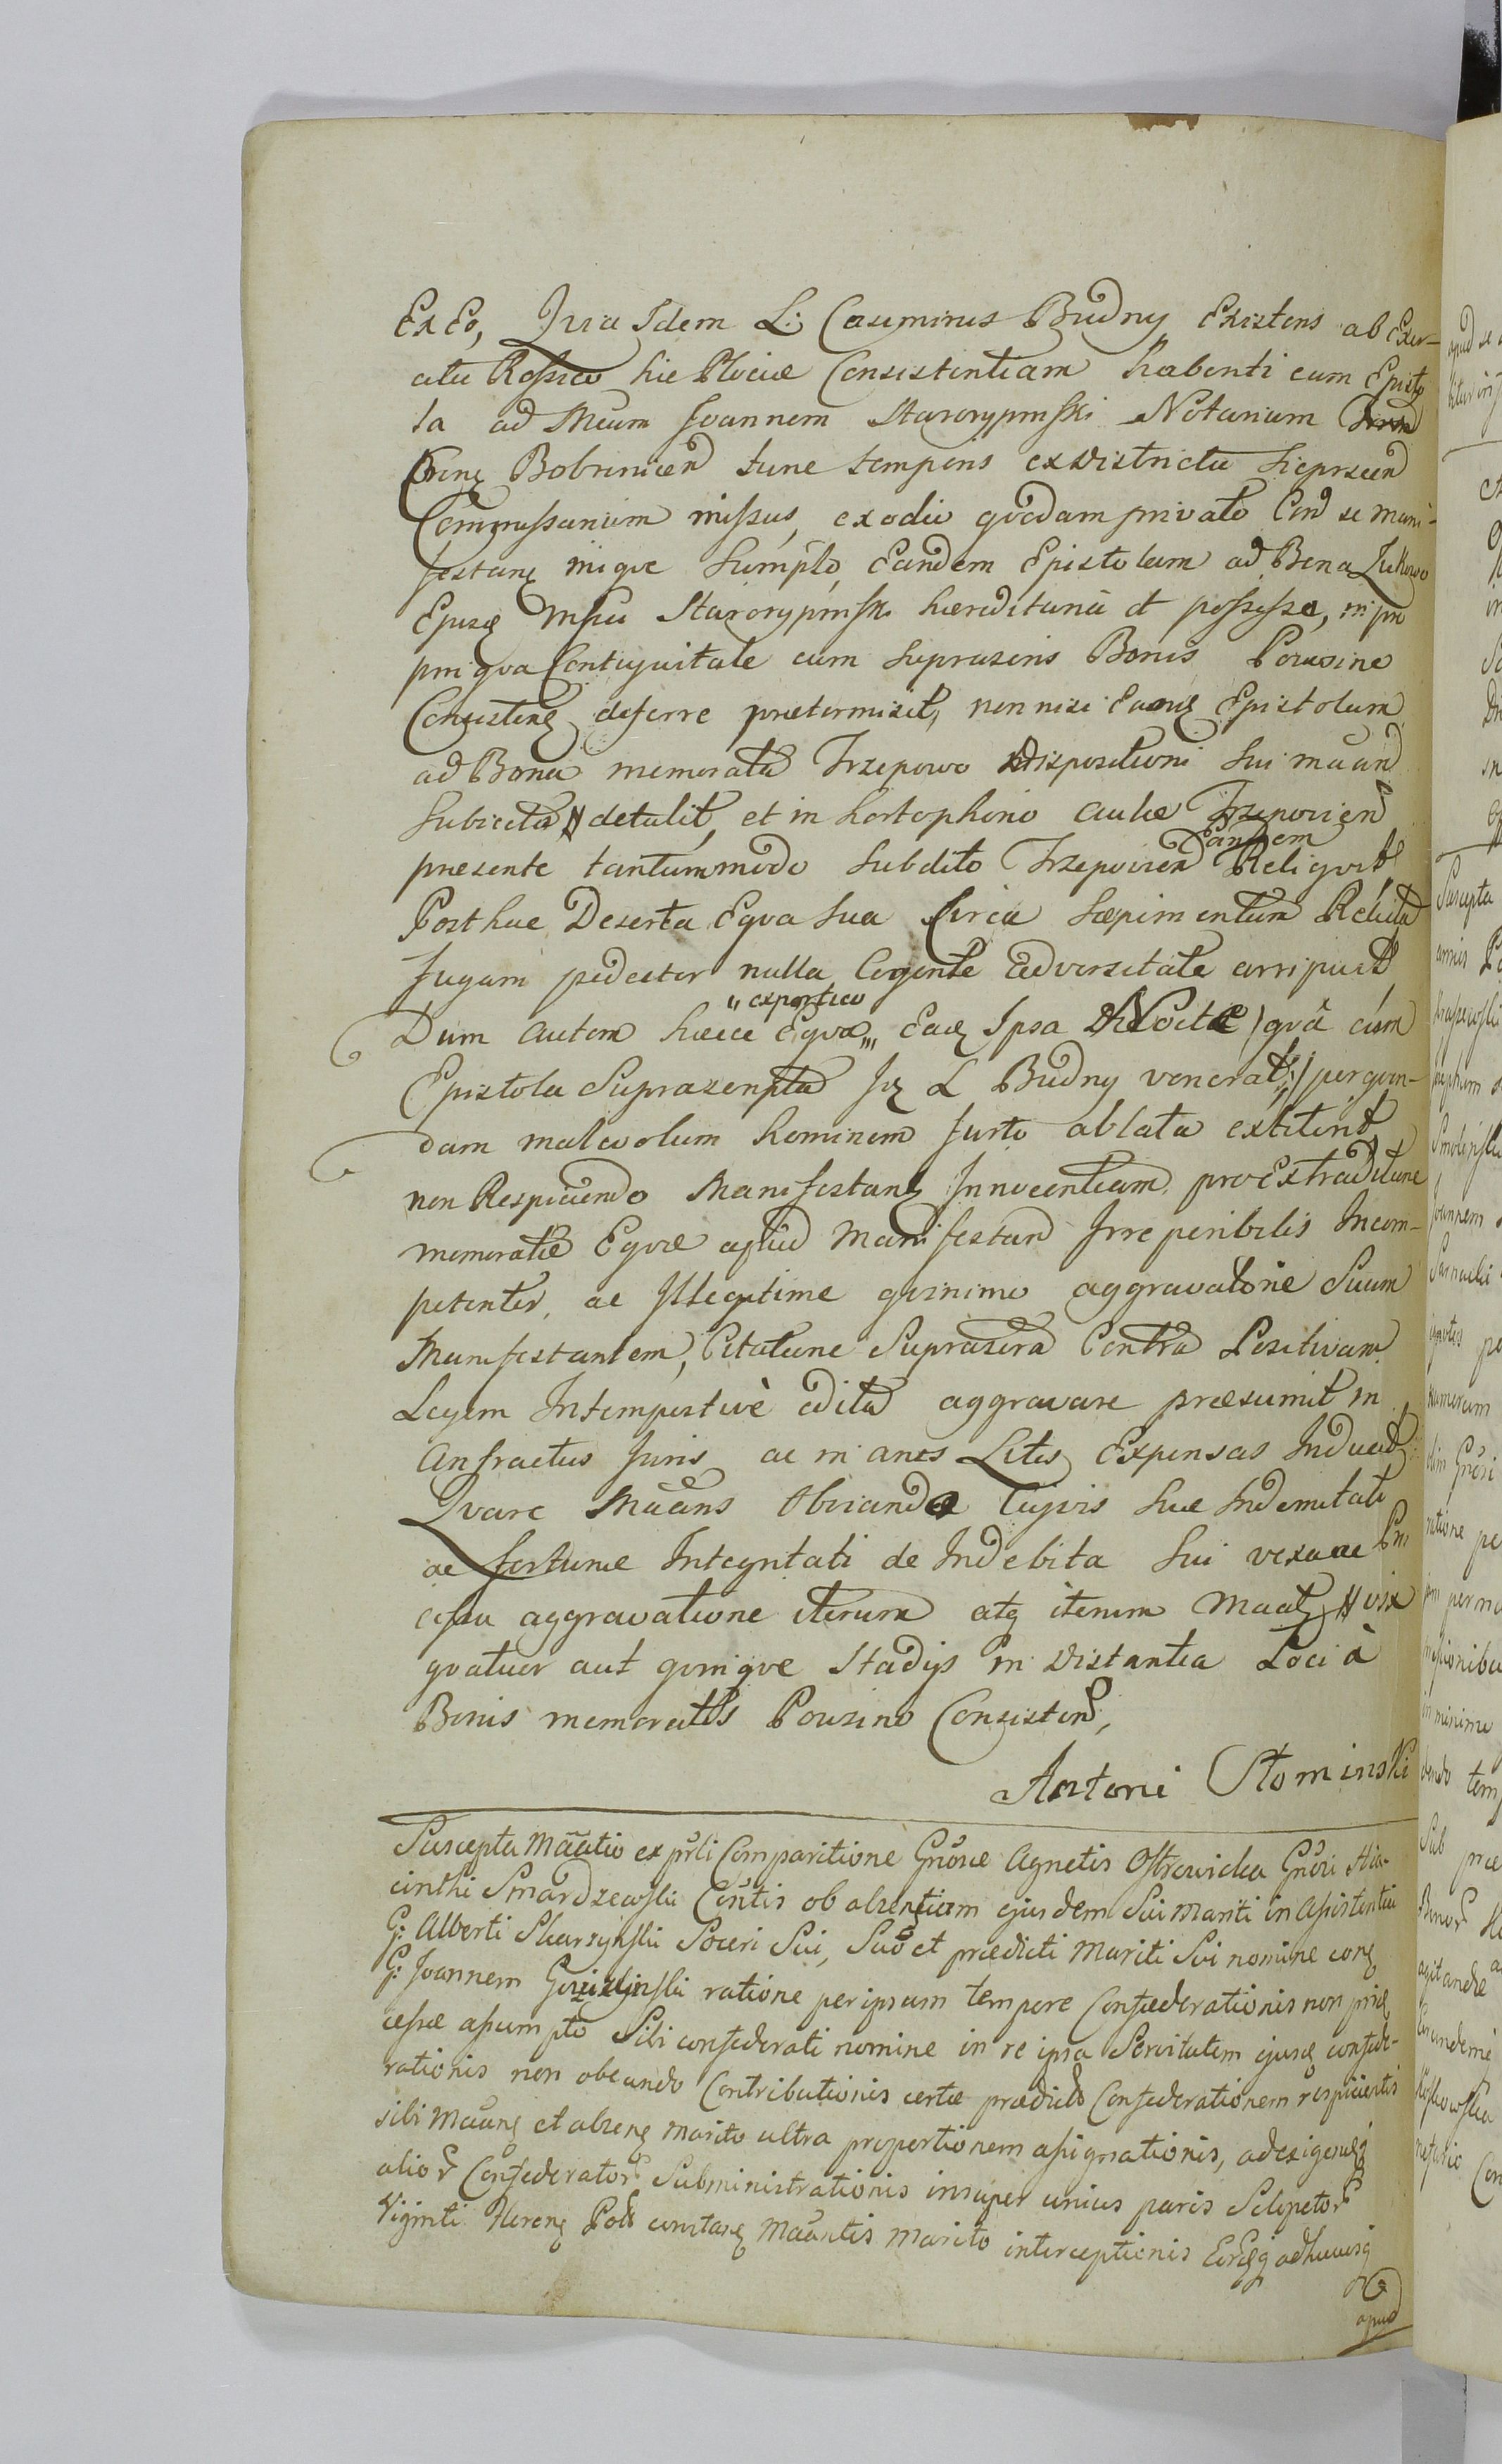 Ex Eo, Quia Idem L: Casimirus Budny Existens ab Exer-
citu Rossico hic Plociæ Consistentiam habenti cum Episto
la ad Mcum Joannem Starorypinski Notarium
Bobrinicen tunc temporis ex Districtu Sieprscen
Commissarium missus, exodio quodam privato Con se mani-
festan inique Sumpto, Eandem Epistolam ad Bona Lukowo
Ejusq Starorypinski hæreditaria et possessa, in pro
pinqua Contiguitate cum suprascris Bonis Powsino
Consisten deferre prætermisit, non nisi Eanq Epistolam
ad Bona memorata Trzepowo Dispositioni Sui maan
Subiecta detulit, et in hortophorio aulæ Trzepovien
Eandem
presente tantummodo Subdito Trzepovien Reliquit,
Post hac Deserta Equa Sua Circa Sæpimentum Relicta
fugam pedester nulla Cogente adversitate arripuit,
"exportico
Dum autem hæcce Equa,,, Eaq Ipsa Nocte (qua cum
Epistola Suprascripta L Budny venerat:) per quen-
dam malevolum hominem furto ablata extiterit,
non Respiciendo Manifestan Innocentiam, pro Extraditione
memoratæ Equæ apud Manifestan Irreperibilis Incom-
petenter, ac Illegitime quinimo aggravatorie Suum
Manifestantem, Citatione Suprascra Contra Positivam
Legem Intempestivè edita aggravare præsumit in
Anfractus Juris ac in anes Litis Expensas Inducit
Quare Maans Obviando Cujvis Suæ Indemnitati
ac fortunæ Integritati de Indebita Sui vexa ac
aggravatione iterum atq iterum Maat vix
quatuor aut quinque Stadys in Distantia Loci à
Bonis memoratis Powsino Consisten,
Antoni Słominski
Suscepta Maatio ex psli Comparitione Gnosæ Agnetis Ostrowicka Gnosi Hia-
cinthi Smardzewski Contis ob absentiam ejusdem Sui Mariti in Assistentia
G: Alberti Skarzynski Soceri Sui, Suo et prædicti Mariti Sui nomine con
G: Joannem ratione per ipsum tempore Confœderationis non
cessæ assumpto Sibi confederati nomine in re ipsa Servitutem ejusq confede-
rationis non obeundo Contributionis certæ prædictæ Confederationem respicientis
sibi Maan et absen marito ultra proportionem assignationis, ad exigen
alior Confederator Subministrationis insuper unius paris Sclopetor
Viginti floren Pol constan Maantis marito interceptionis adhucusq
apud